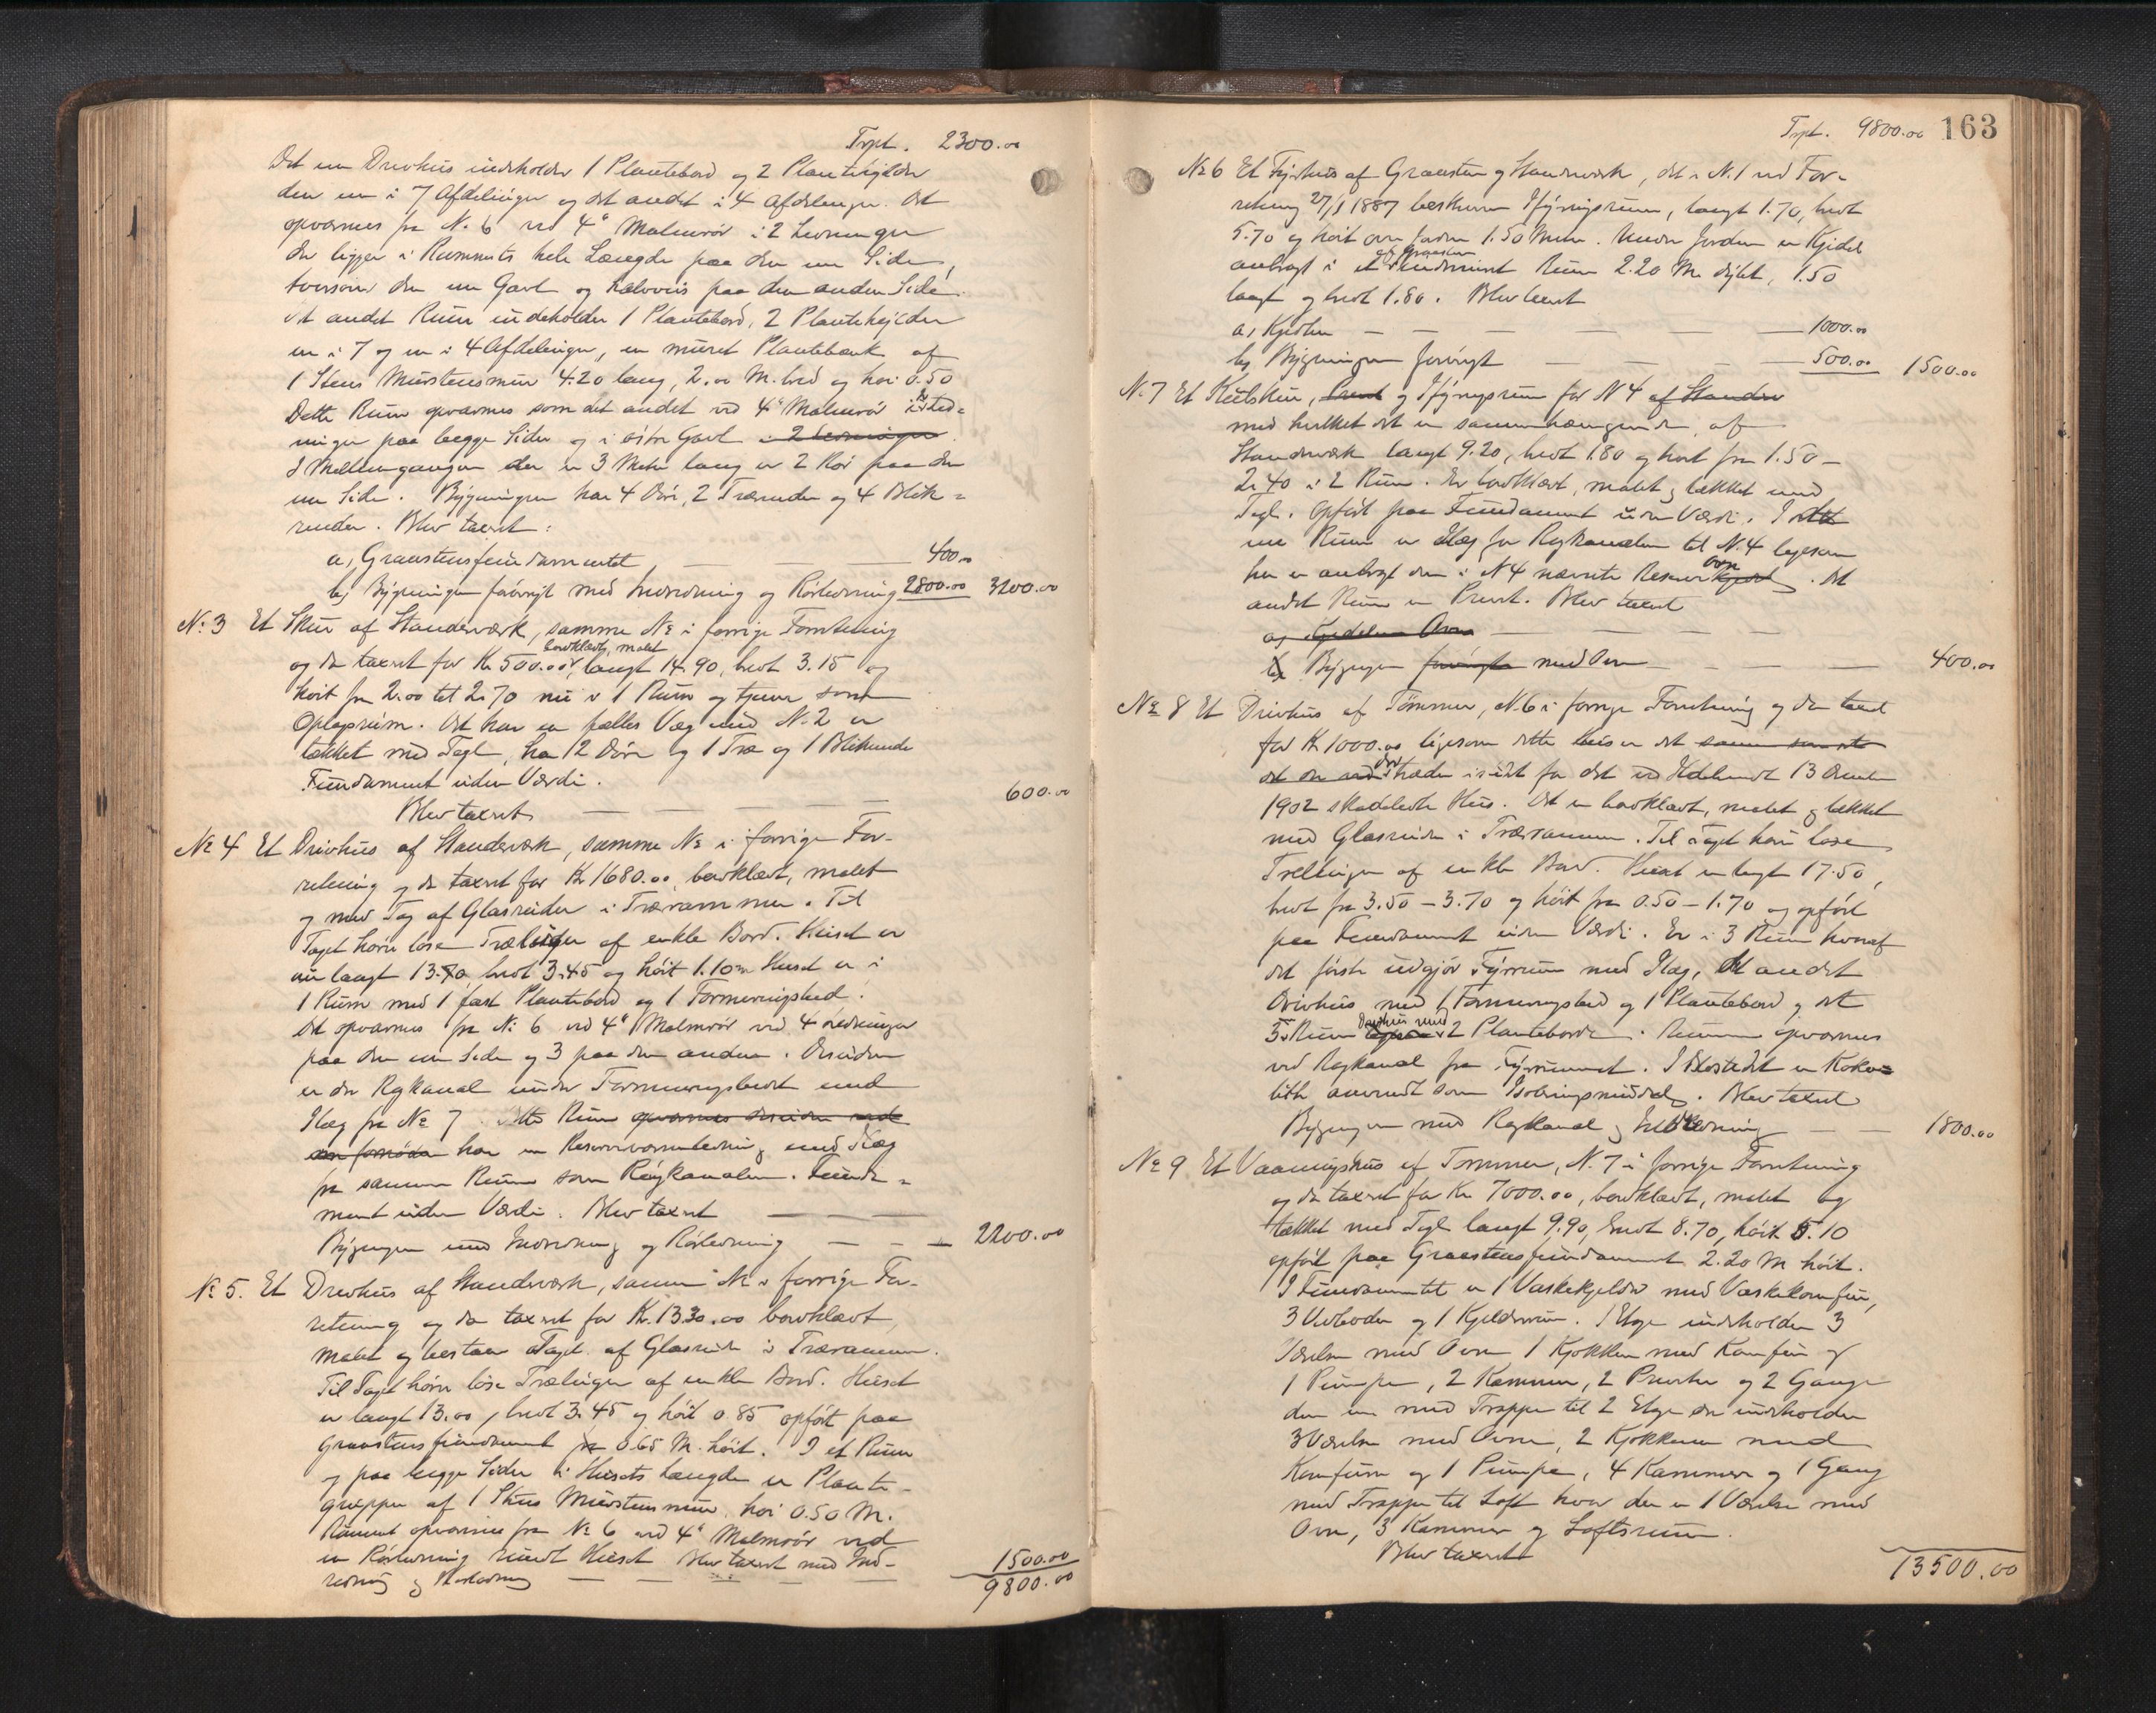 Trpt. 2300.00
Det ene Drivhus indeholder 1 Plantebord og 2 Plantehylder
den ene i 7 Afdelinger og det andet i 4 Afdelinger. Det
opvarmes fra N. 6 ved 4" Malmrør i 2 Ledninger
der ligger i Rummets hele Længde paa den ene Side,
tversover den ene Gavl og halvveis paa den anden Side.
Det andet Rum indeholder 1 Plantebord, 2 Plantehylder
en i 7 og en i 4 Afdelinger, en muret Plantebænk af
1 Stens Murstensmur 4.20 lang, 2.00 M. bred og høi 0.50
Dette Rum opvarmes som det andet ved 4" Malmrør i Led=
ninger paa begge Sider og i østre Gavl i 2 Ledninger.
I Mellemgangen der er 3 Meter lang er 2 Rør paa den
ene Side. Bygningen har 4 Døre, 2 Trærender og 4 Blik=
render. Blev taxert:
a, Graastensfundamentet — — — 400.00
b, Bygningen forøvrigt med Indredning og Rørledning 2800.00 3200.00
No 3 Et Skur af Standerværk, samme No i forrige Forretning
og da taxert for Kr 500.00, bordklædt, malet langt 14.90, bredt 3.15 og
høit fra 2.00 til 2.70 nu i 1 Rum og tjener som
Oplagsrum. Det har en fælles Væg med N. 2 er
tækket med Tegl, har 12 Døre og 1 Træ og 1 Blikrende
Fundament uden Værdi.
Blev taxert — — — 600.00
No 4 Et Drivhus af Standerværk, samme No i forrige For-
retning og da taxert for Kr 1680.00, bordklædt, malet
og med Tag af Glasruder i Trærammer. Til
Taget hører løse Trælinger af enkle Bord. Huset er
nu langt 13.70, bredt 3.45 og høit 1.10 m Huset er i
1 Rum med 1 fast Plantebord og 1 Formeringsbed.
Det opvarmes fra No 6 ved 4" Malmrør ved 4 Ledninger
paa den ene Side og 3 paa den anden. Desuden
er der Røgkanal under Formeringsbedet med
Ilæg fra No 7. Dette Rum opvarmes desuden ved
om fornøden har en Reservevarmeledning med Ilæg
fra samme Rum som Røgkanalen. Funda=
ment uden Værdi. Blev taxert — — —
Bygningen med Indredning og Rørledning — — — 2200.00
No 5. Et Drivhus af Standerværk, samme No i forrige For-
retning og da taxert for Kr. 1330.00 bordklædt,
malet og bestaar Taget af Glasruder i Trærammer.
Til Taget hører løse Trælinger af enkle Bord. Huset
er langt 13.00, bredt 3.45 og høit 0.85 opført paa
Graastensfundament fra 0.65 M. høit. I et Rum
og paa begge Sider i Husets Længde er Plante-
grupper af 1 Stens Murstensmur, høi 0.50 M.
Rummet opvarmes fra No 6 ved 4" Malmrør ved
en Rørledning rundt Huset Blev taxert med Ind-
redning og Rørledning — — — 1500.00
9800.00
Trpt. 9800.00 163
No 6 Et Fyrhus af Graasten og Standerværk, det i N. 1 ved For-
retning 27/8 1887 beskrevne Ifyringsrum, langt 1.70, bredt
5.70 og høit over Jorden 1.50 Meter. Under Jorden er Kjedel
anbragt i et af Graasten indmuret Rum 2.20 M dybt, 1.50
langt og bredt 1.80. Blev taxert
a, Kjedlen — — — 1000.00
b, Bygningen forøvrigt — — — 500.00 1500.00
N. 7 Et Kulskur, Privet og Ifyringsrum for N 4 af Stander
med hvilket det er sammenhængende, af
Standerværk langt 9.20, bredt 1.80 og høit fra 1.50 –
2.40 i 2 Rum. Er bordklædt, malet og tækket med
Tegl. Opført paa Fundament uden Værdi. I det
ene Rum er Ilæg for Røgkanalen til N. 4 ligesom
her er anbragt den i N 4 nævnte Reserve Ovn Kjedel. Det
andet Rum er Privet. Blev taxert
a, Kjedelen Ovn — — —
b, Bygningen forøvrigt med Ovn — — — 400.00
No 8 Et Drivhus af Tømmer, N. 6 i forrige Forretning og da taxert
for Kr 1000.00 ligesom dette Hus er det samme som det
det der ved træder istedet for det ved Ildebrand 13 Decemb
1902 skadelidte Hus. Det er bordklædt, malet og tækket
med Glasruder i Trærammer. Til Taget hører løse
Trælinger af enkle Bord. Huset er langt 17.50,
bredt fra 3.50 – 3.70 og høit fra 0.50 – 1.70 og opført
paa Fundament uden Værdi. Er i 3 Rum hvoraf
det første udgjør Fyrrum med Ilæg, det andet
Drivhus med 1 Formeringsbed og 1 Plantebord og det
3die Rum Drivhus med 2 Planteborde. Rummene opvarmes
ved Røgkanal fra Fyrrummet. I Ildstedet er Koko=
lith anvendt som Isoleringsmiddel. Blev taxert
Bygningen med Røgkanal og Indredning — — 1800.00
No 9 Et Vaaningshus af Tømmer, N. 7 i forrige Forretning
og da taxert for Kr. 7000.00, bordklædt, malet og
tækket med Tegl langt 9.90, bredt 8.70, høit 5.10
opført paa Graastensfundament 2.20 M høit.
I Fundamentet er 1 Vaskekjelder med Vaskekomfur,
3 Vedboder og 1 Kjelderrum. 1 Etage indeholder 3
Værelser med Ovne 1 Kjøkken med Komfur og
1 Pumpe, 2 Kammer, 2 Priveter og 2 Gange
den ene med Trappe til 2 Etage der indeholder
3 Værelser med Ovne, 2 Kjøkkener med
Komfurer og 1 Pumpe, 4 Kammer og 1 Gang
med Trappe til Loft hvor der er 1 Værelse med
Ovn, 3 Kammer og Loftsrum.
Blev taxert
13500.00